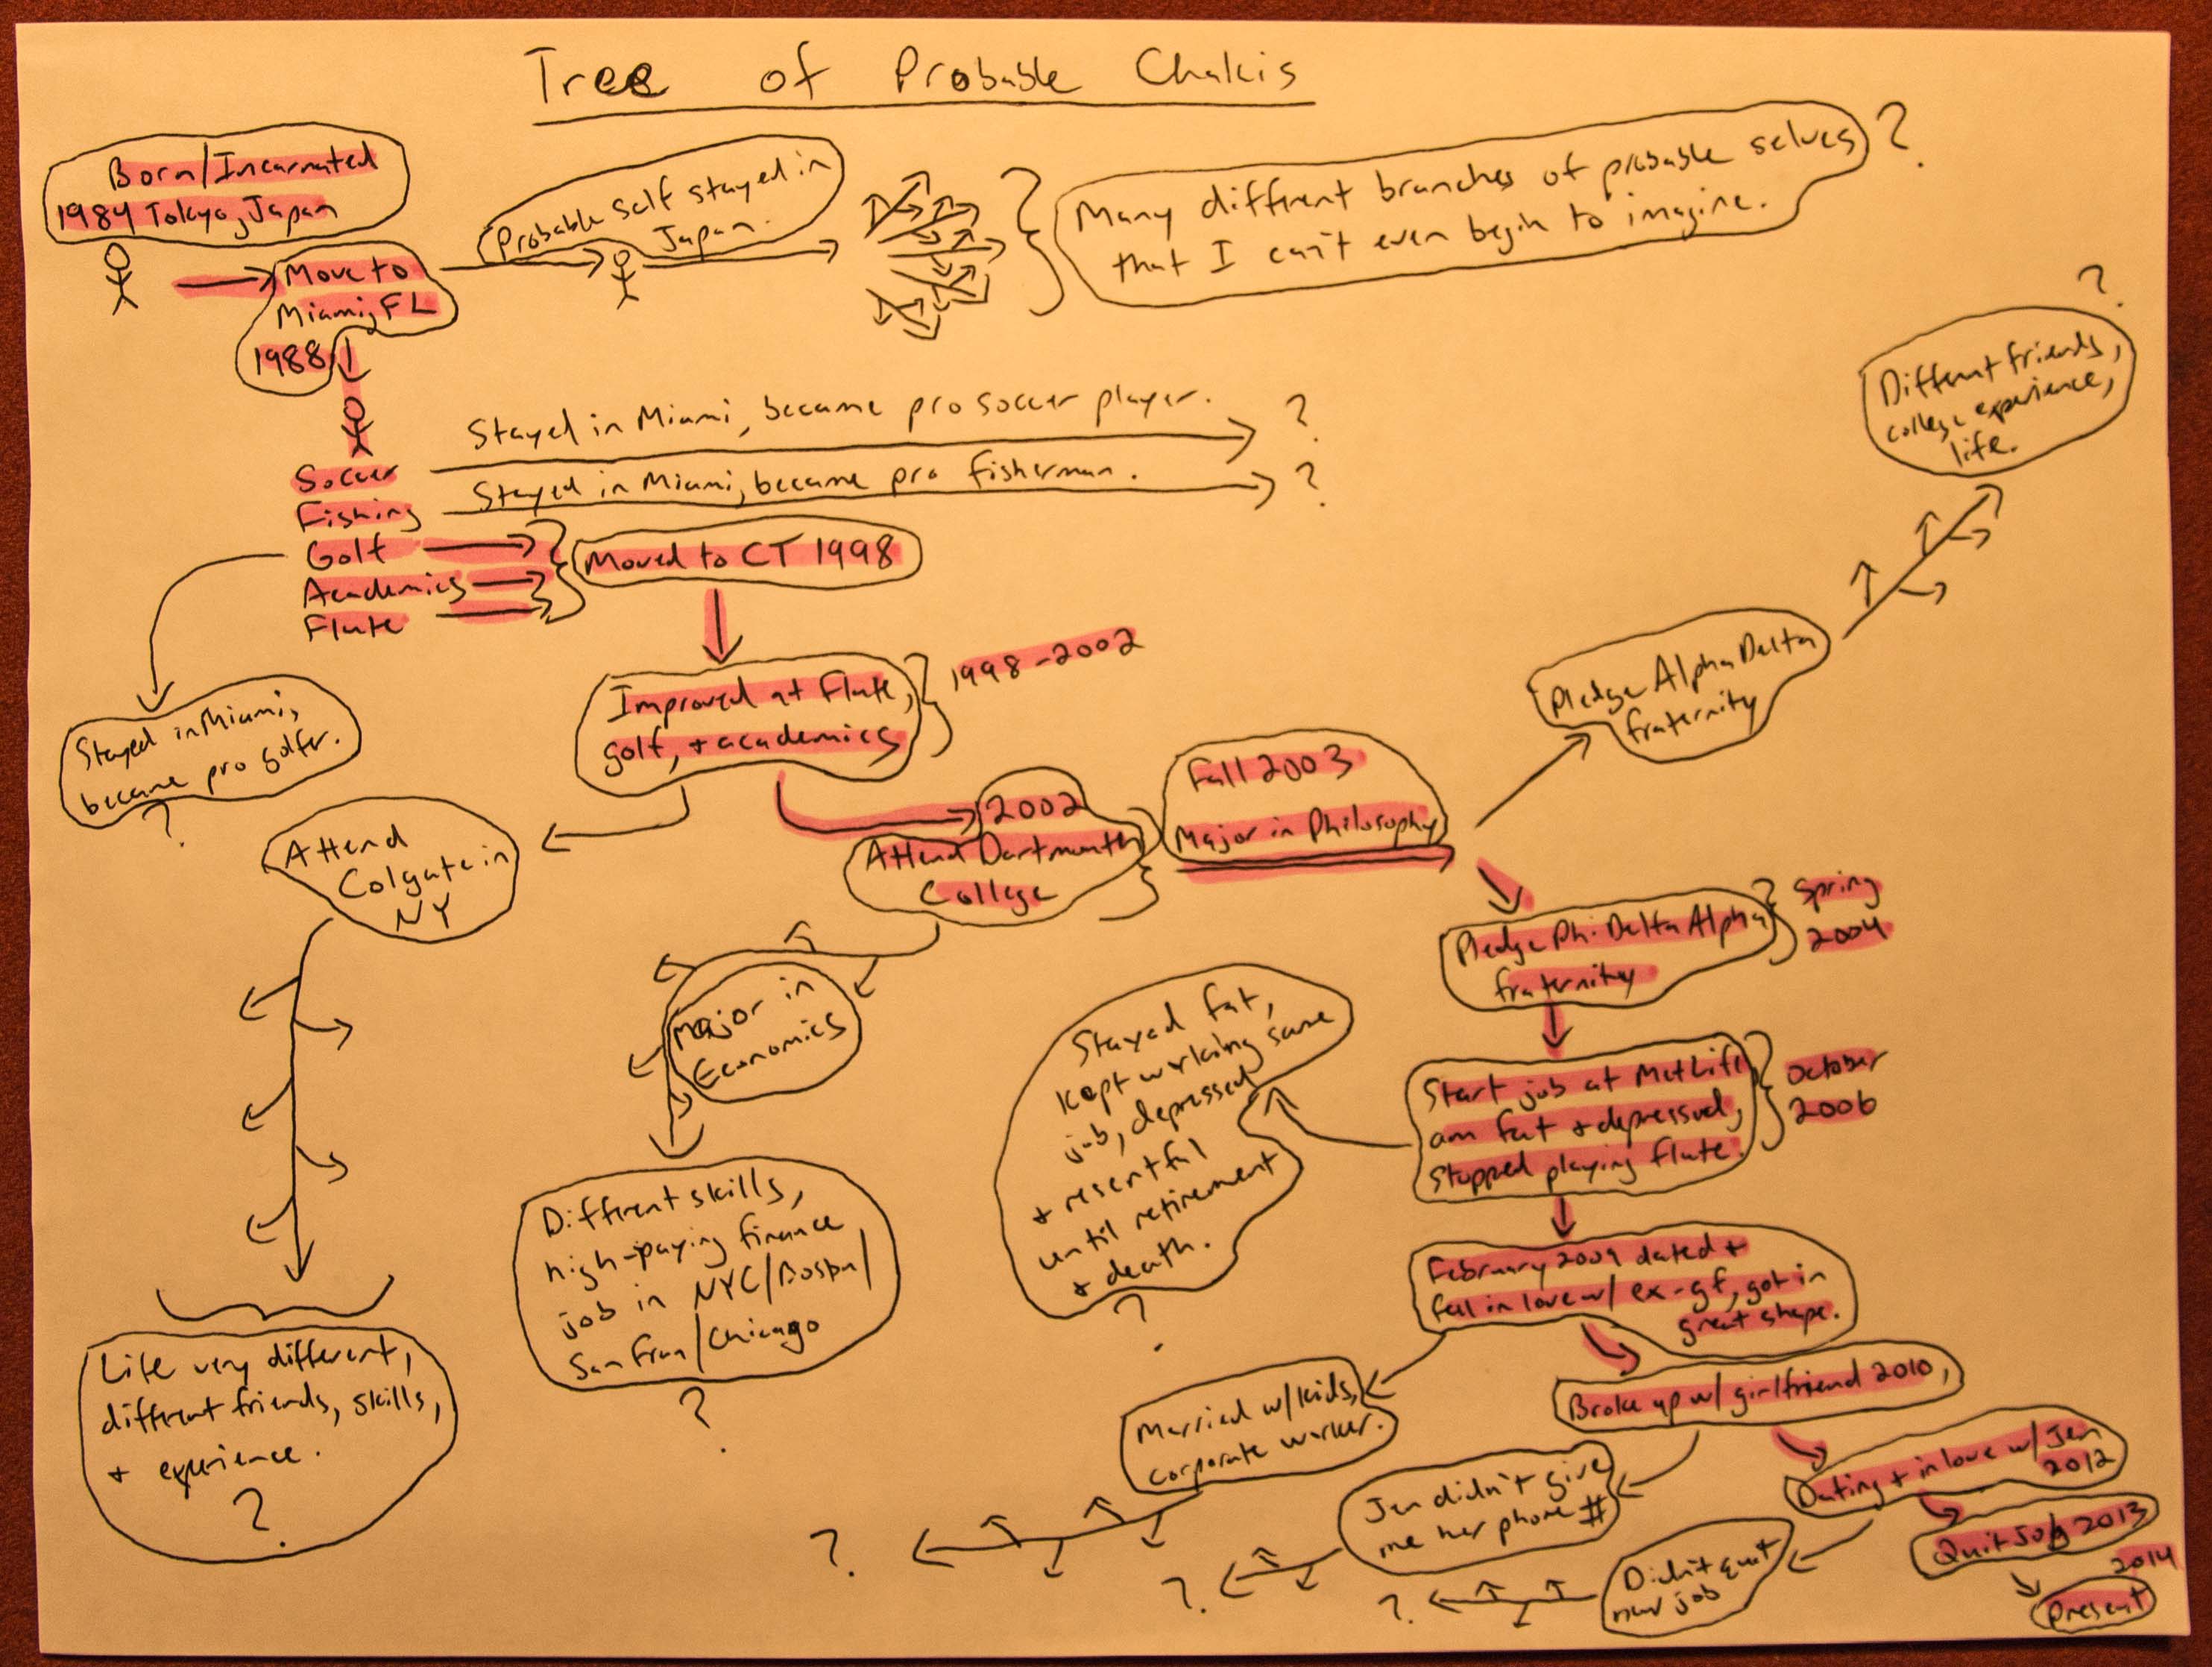 Tree of Probable Chakis
Born/Incarnated
1984 Tokyo, Japan
Move to
Miami, FL
1988
Probable Self stayed in
Japan.
Many different branches of probable selves
that I can't even begin to imagine.
?
Soccer
Fishing
Golf
Academics
Flute
Stayed in Miami, became pro soccer player.
?
Stayed in Miami, became pro fisherman.
?
Stayed in Miami,
became pro golfer.
?
Moved to CT 1998
Improved at Flute,
golf, + academics
1998-2002
Attend
Colgate in
NY
Life very different,
different friends, skills,
+ experience.
?
2002
Attend Dartmouth
College
Major in
Economics
Different skills,
high-paying finance
job in NYC/Boston/
San Fran/Chicago
?
Fall 2003
Major in Philosophy
Pledge Alpha Delta
fraternity
?
Different friends,
college experience,
life.
Pledge Phi Delta Alpha
fraternity
Spring
2004
Start job at MetLife
am fat + depressed,
stopped playing flute.
October
2006
Stayed fat,
kept working same
job, depressed
+ resentful
until retirement
+ death.
?
February 2009 dated +
fell in love w/ ex-gf, got in
great shape.
Married w/kids,
corporate worker.
?
Broke up w/ girlfriend 2010,
Jen didn't give
me her phone #
?
Dating + in love w/ Jen
2012
Didn't quit
my job
?
Quit Job 2013
2014
Present